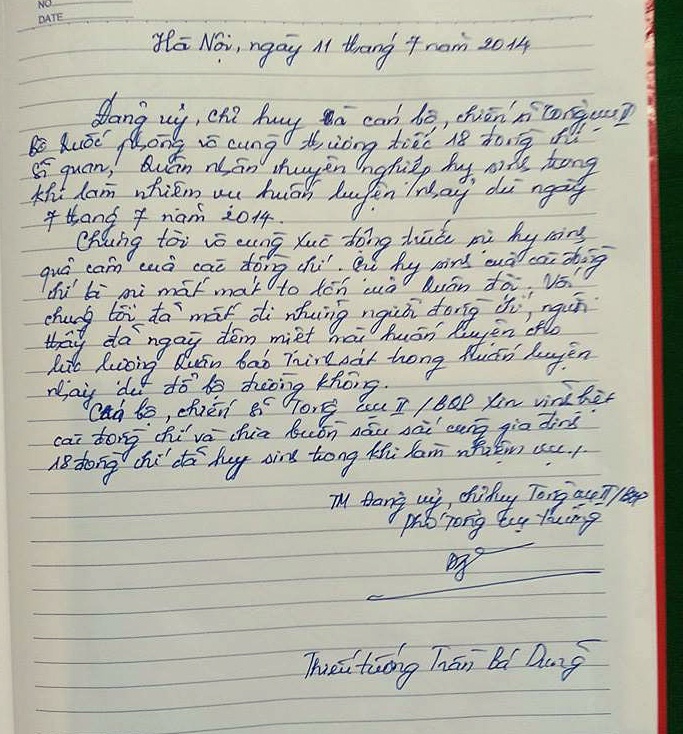 NO
DATE
Hà Nội, ngày 11 tháng 7 năm 2014
Đảng uỷ, chỉ huy và cán bộ, chiến sĩ Tổng cục II
Bộ Quốc phòng vô cùng thương tiếc 18 đồng chí
sĩ quan, Quân nhân chuyên nghiệp hy sinh trong
khi làm nhiệm vụ huấn luyện nhảy dù ngày
7 tháng 7 năm 2014.
Chúng tôi vô cùng xúc động trước sự hy sinh
quả cảm của các đồng chí. Sự hy sinh của các đồng
chí là sự mất mát to lớn của Quân đội. Với
chúng tôi đã mất đi những người đồng chí, người
thầy đã ngày đêm miệt mài huấn luyện cho
lực lượng Quân báo Trinh sát trong huấn luyện
nhảy dù đổ bộ đường không.
Cán bộ, chiến sĩ Tổng cục II/BQP xin vĩnh biệt
các đồng chí và chia buồn sâu sắc cùng gia đình
18 đồng chí đã hy sinh trong khi làm nhiệm vụ./.
TM Đảng uỷ, chỉ huy Tổng cục II/BQP
Phó Tổng cục trưởng
Thiếu tướng Trần Bá Dung